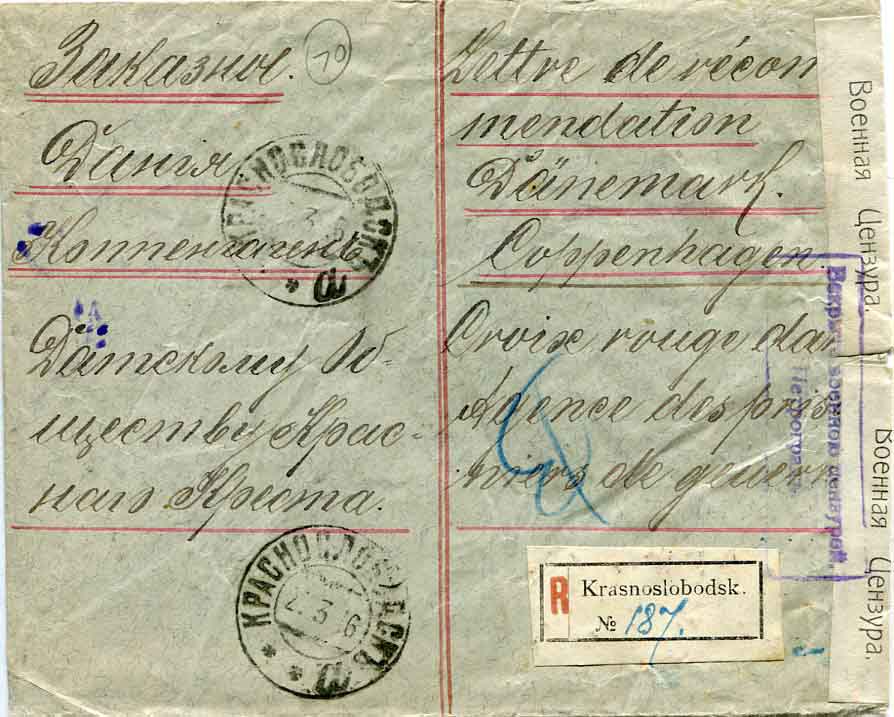 Заказное.
70
Данія
Коппенгагенъ
Датскому Об-
ществу Крас-
наго Креста.
КРАСНОСЛОБОДСКЪ
КРАСНОСЛОБОДСКЪ
2.3.6
Lettre de récom
mendation
Dänemark.
Coppenhagen.
Croix rouge da
Agence des priso
niers de gouerr
R Krasnoslobodsk.
№ 187.
Военная Цензура
Военная Цензура.
Вскрыто военной цензурой.
Петроградъ